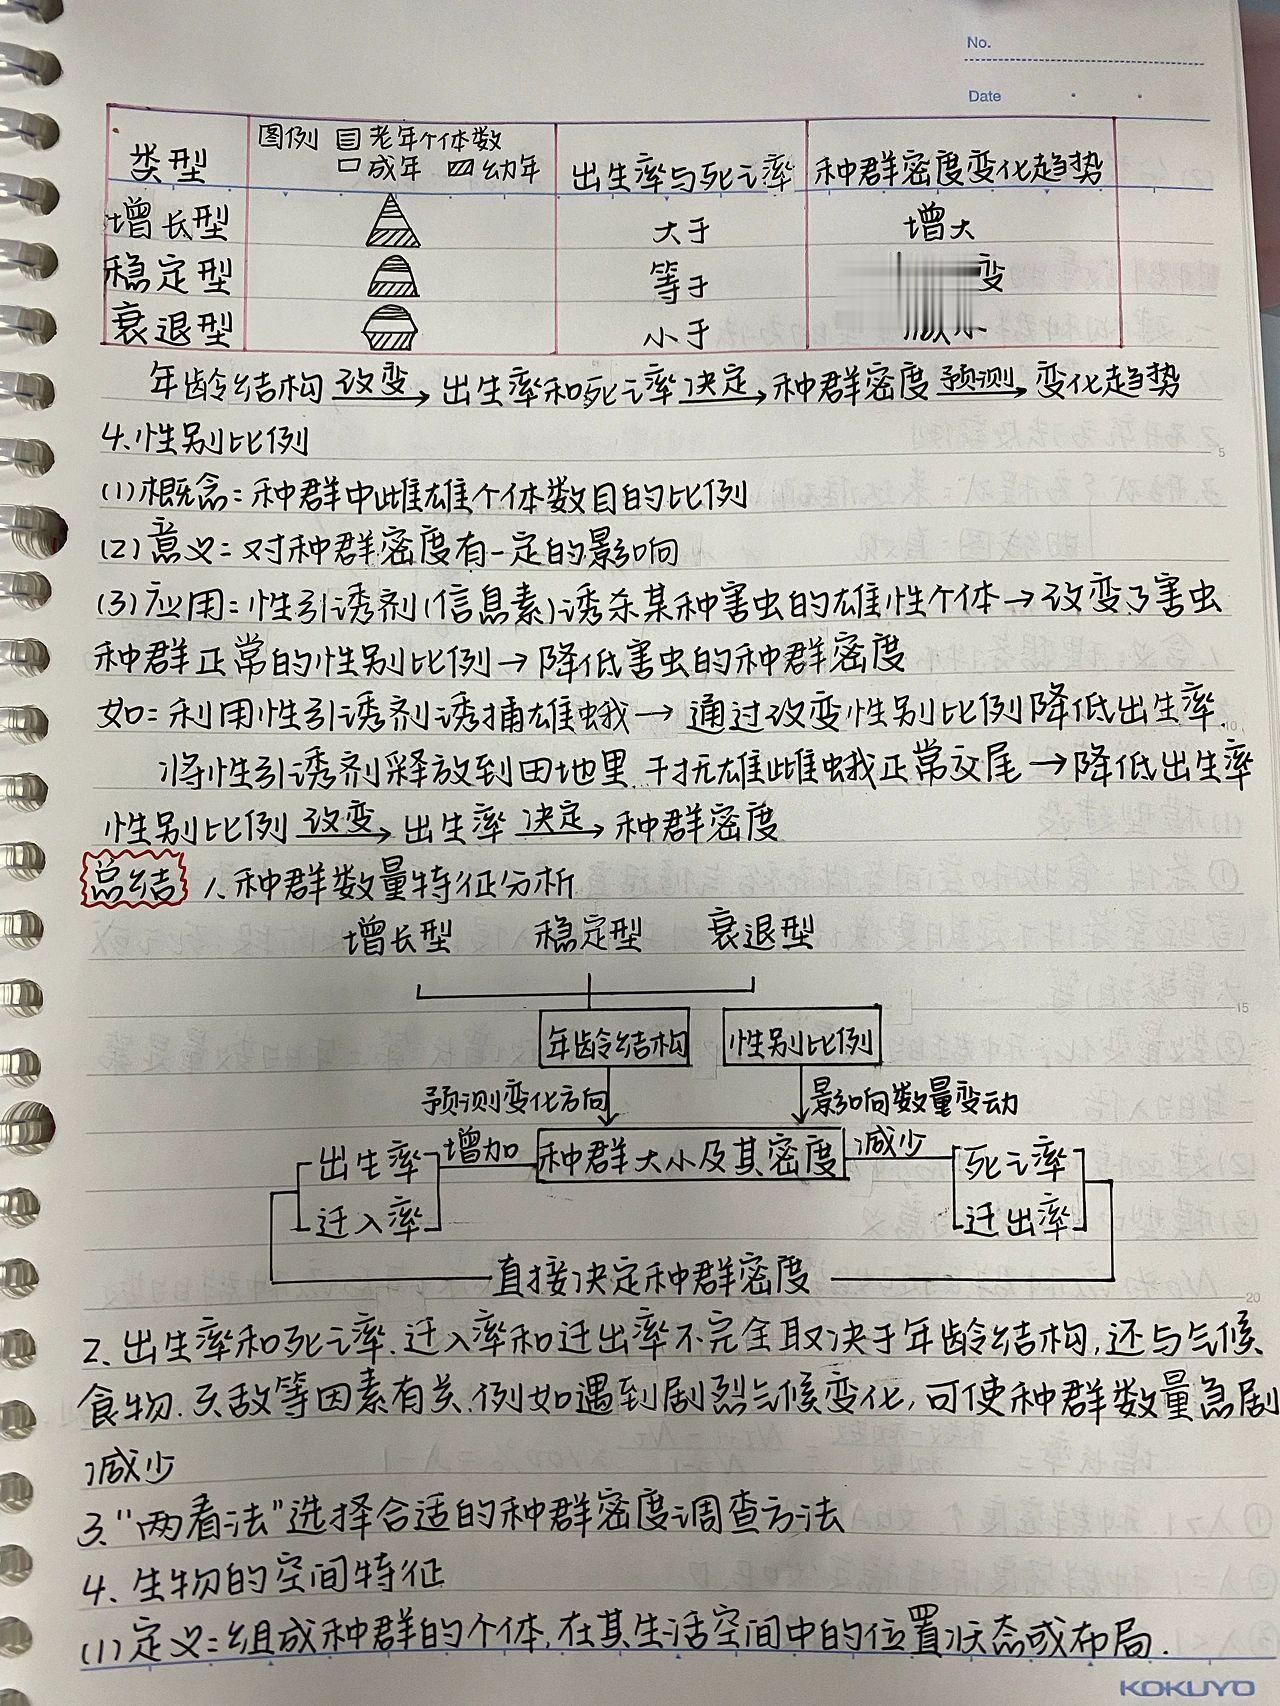 No.
Date
类型 图例 老年个体数 成年 幼年 出生率与死亡率 种群密度变化趋势
增长型 大于 增大
稳定型 等于 变
衰退型 小于
年龄结构 改变→ 出生率和死亡率 决定→ 种群密度 预测→ 变化趋势
4.性别比例
(1)概念:种群中雌雄个体数目的比例
(2)意义:对种群密度有一定的影响
(3)应用:性引诱剂(信息素)诱杀某种害虫的雄性个体→改变了害虫
种群正常的性别比例→降低害虫的种群密度
如:利用性引诱剂诱捕雄蛾→通过改变性别比例降低出生率.
将性引诱剂释放到田地里.干扰雄雌蛾正常交尾→降低出生率
性别比例 改变→ 出生率 决定→ 种群密度
总结 1.种群数量特征分析
增长型 稳定型 衰退型
年龄结构 性别比例
预测变化方向 影响数量变动
出生率 增加 种群大小及其密度 减少 死亡率
迁入率 迁出率
直接决定种群密度
2.出生率和死亡率.迁入率和迁出率不完全取决于年龄结构,还与气候
食物.天敌等因素有关.例如遇到剧烈气候变化,可使种群数量急剧
减少
3."两看法"选择合适的种群密度调查方法
4.生物的空间特征
(1)定义:组成种群的个体,在其生活空间中的位置状态或布局.
KOKUYO